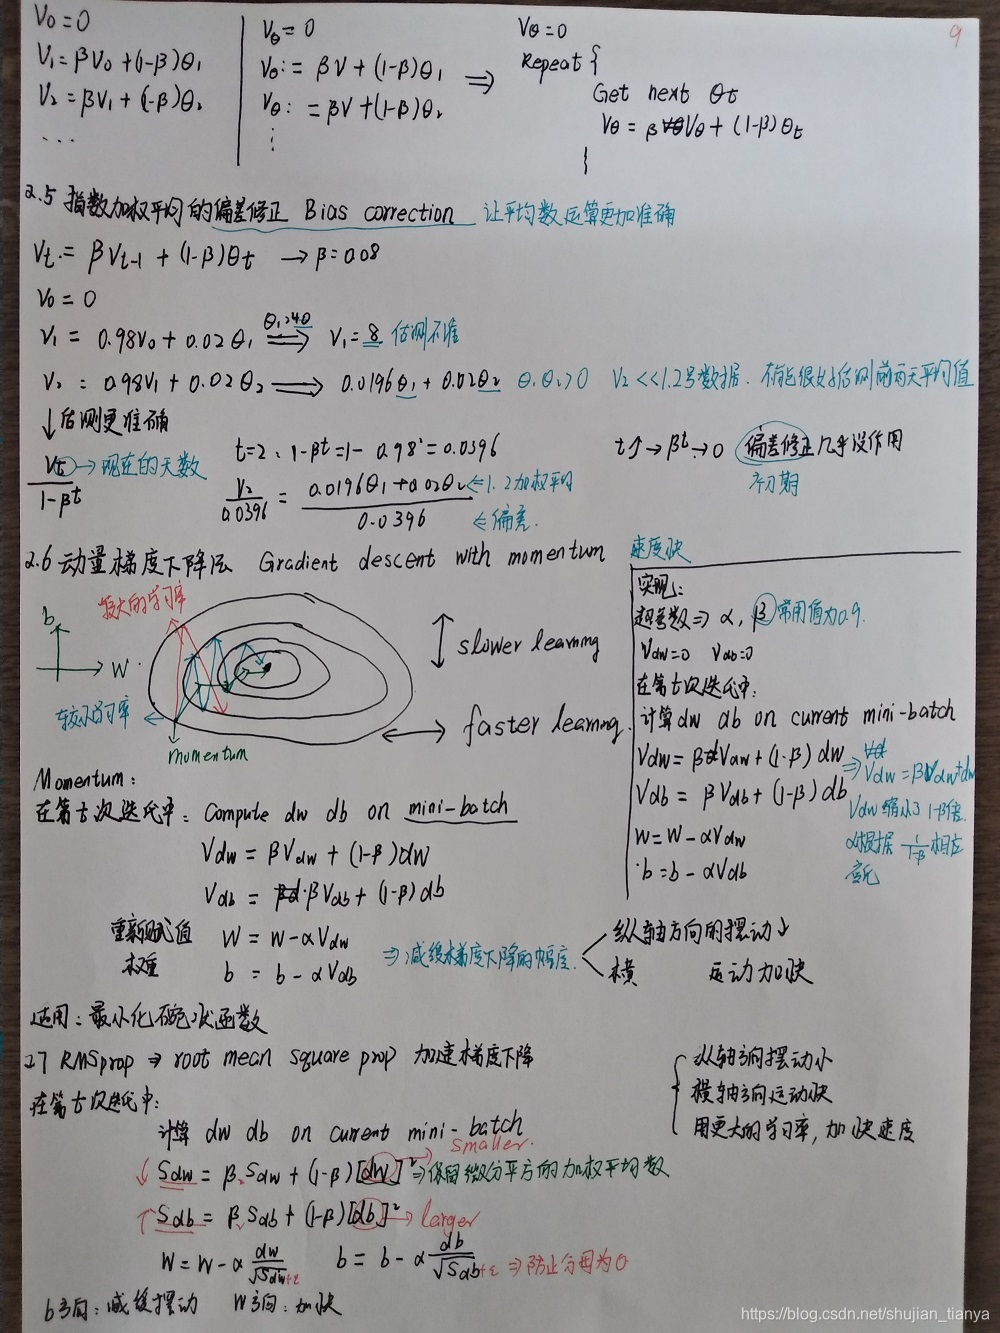 9
V₀=0
V₁=βV₀+(1-β)θ₁
V₂=βV₁+(1-β)θ₂
...
Vθ=0
Vθ:=βV+(1-β)θ₁
Vθ:=βV+(1-β)θ₂
⋮
⇒
Vθ=0
Repeat {
Get next θt
Vθ=βVθ+(1-β)θt
}
2.5 指数加权平均的偏差修正 Bias correction 让平均数运算更加准确
Vt.=βVt-1+(1-β)θt →β=0.08
V₀=0
V₁=0.98V₀+0.02θ₁ ⇒ V₁=8 估测不准
V₂=0.98V₁+0.02θ₂ ⇒ 0.0196θ₁+0.02θ₂ θ₁θ₂>0 V₂<<1.2号数据.不能很好估测前两天平均值
↓估测更准确
Vt/(1-βt) →现在的天数
t=2、1-βt=1-0.98²=0.0396
V₂/0.0396=(0.0196θ₁+0.02θ₂)/0.0396 ←1.2加权平均
←偏差.
t↑→βt→0 偏差修正几乎没作用
初期
2.6 动量梯度下降法 Gradient descent with momentum 速度快
较大的学习率
b
W
较小学习率
momentum
slower learning
faster learning
实现:
超参数⇒α,β常用值为0.9.
Vdw=0 Vdb=0
在第t次迭代中:
计算dw db on current mini-batch
Vdw=βVdw+(1-β)dw
⇒Vdw=βVdw+dw
Vdb=βVdb+(1-β)db
Vdw缩小了1-β倍.
W=W-αVdw
α根据 1/(1-β) 相应
b=b-αVdb
变化
Momentum:
在第t次迭代中: Compute dw db on mini-batch
Vdw=βVdw+(1-β)dw
Vdb=βVdb+(1-β)db
重新赋值 W=W-αVdw
权重 b=b-αVdb
⇒减缓梯度下降的幅度.
纵轴方向的摆动↓
横 运动加快
适用:最小化碗状函数
2.7 RMSprop ⇒ root mean square prop 加速梯度下降
在第t次迭代中:
计算 dw db on current mini-batch
smaller.
↓Sdw=βSdw+(1-β)[dw]²⇒保留微分平方的加权平均数
↑Sdb=βSdb+(1-β)[db]²→larger
W=W-α dw/√Sdw+ε b=b-α db/√Sdb+ε ⇒防止分母为0
b方向:减缓摆动 W方向:加快
纵轴方向摆动小
横轴方向运动快
用更大的学习率,加快速度
https://blog.csdn.net/shujian_tianya